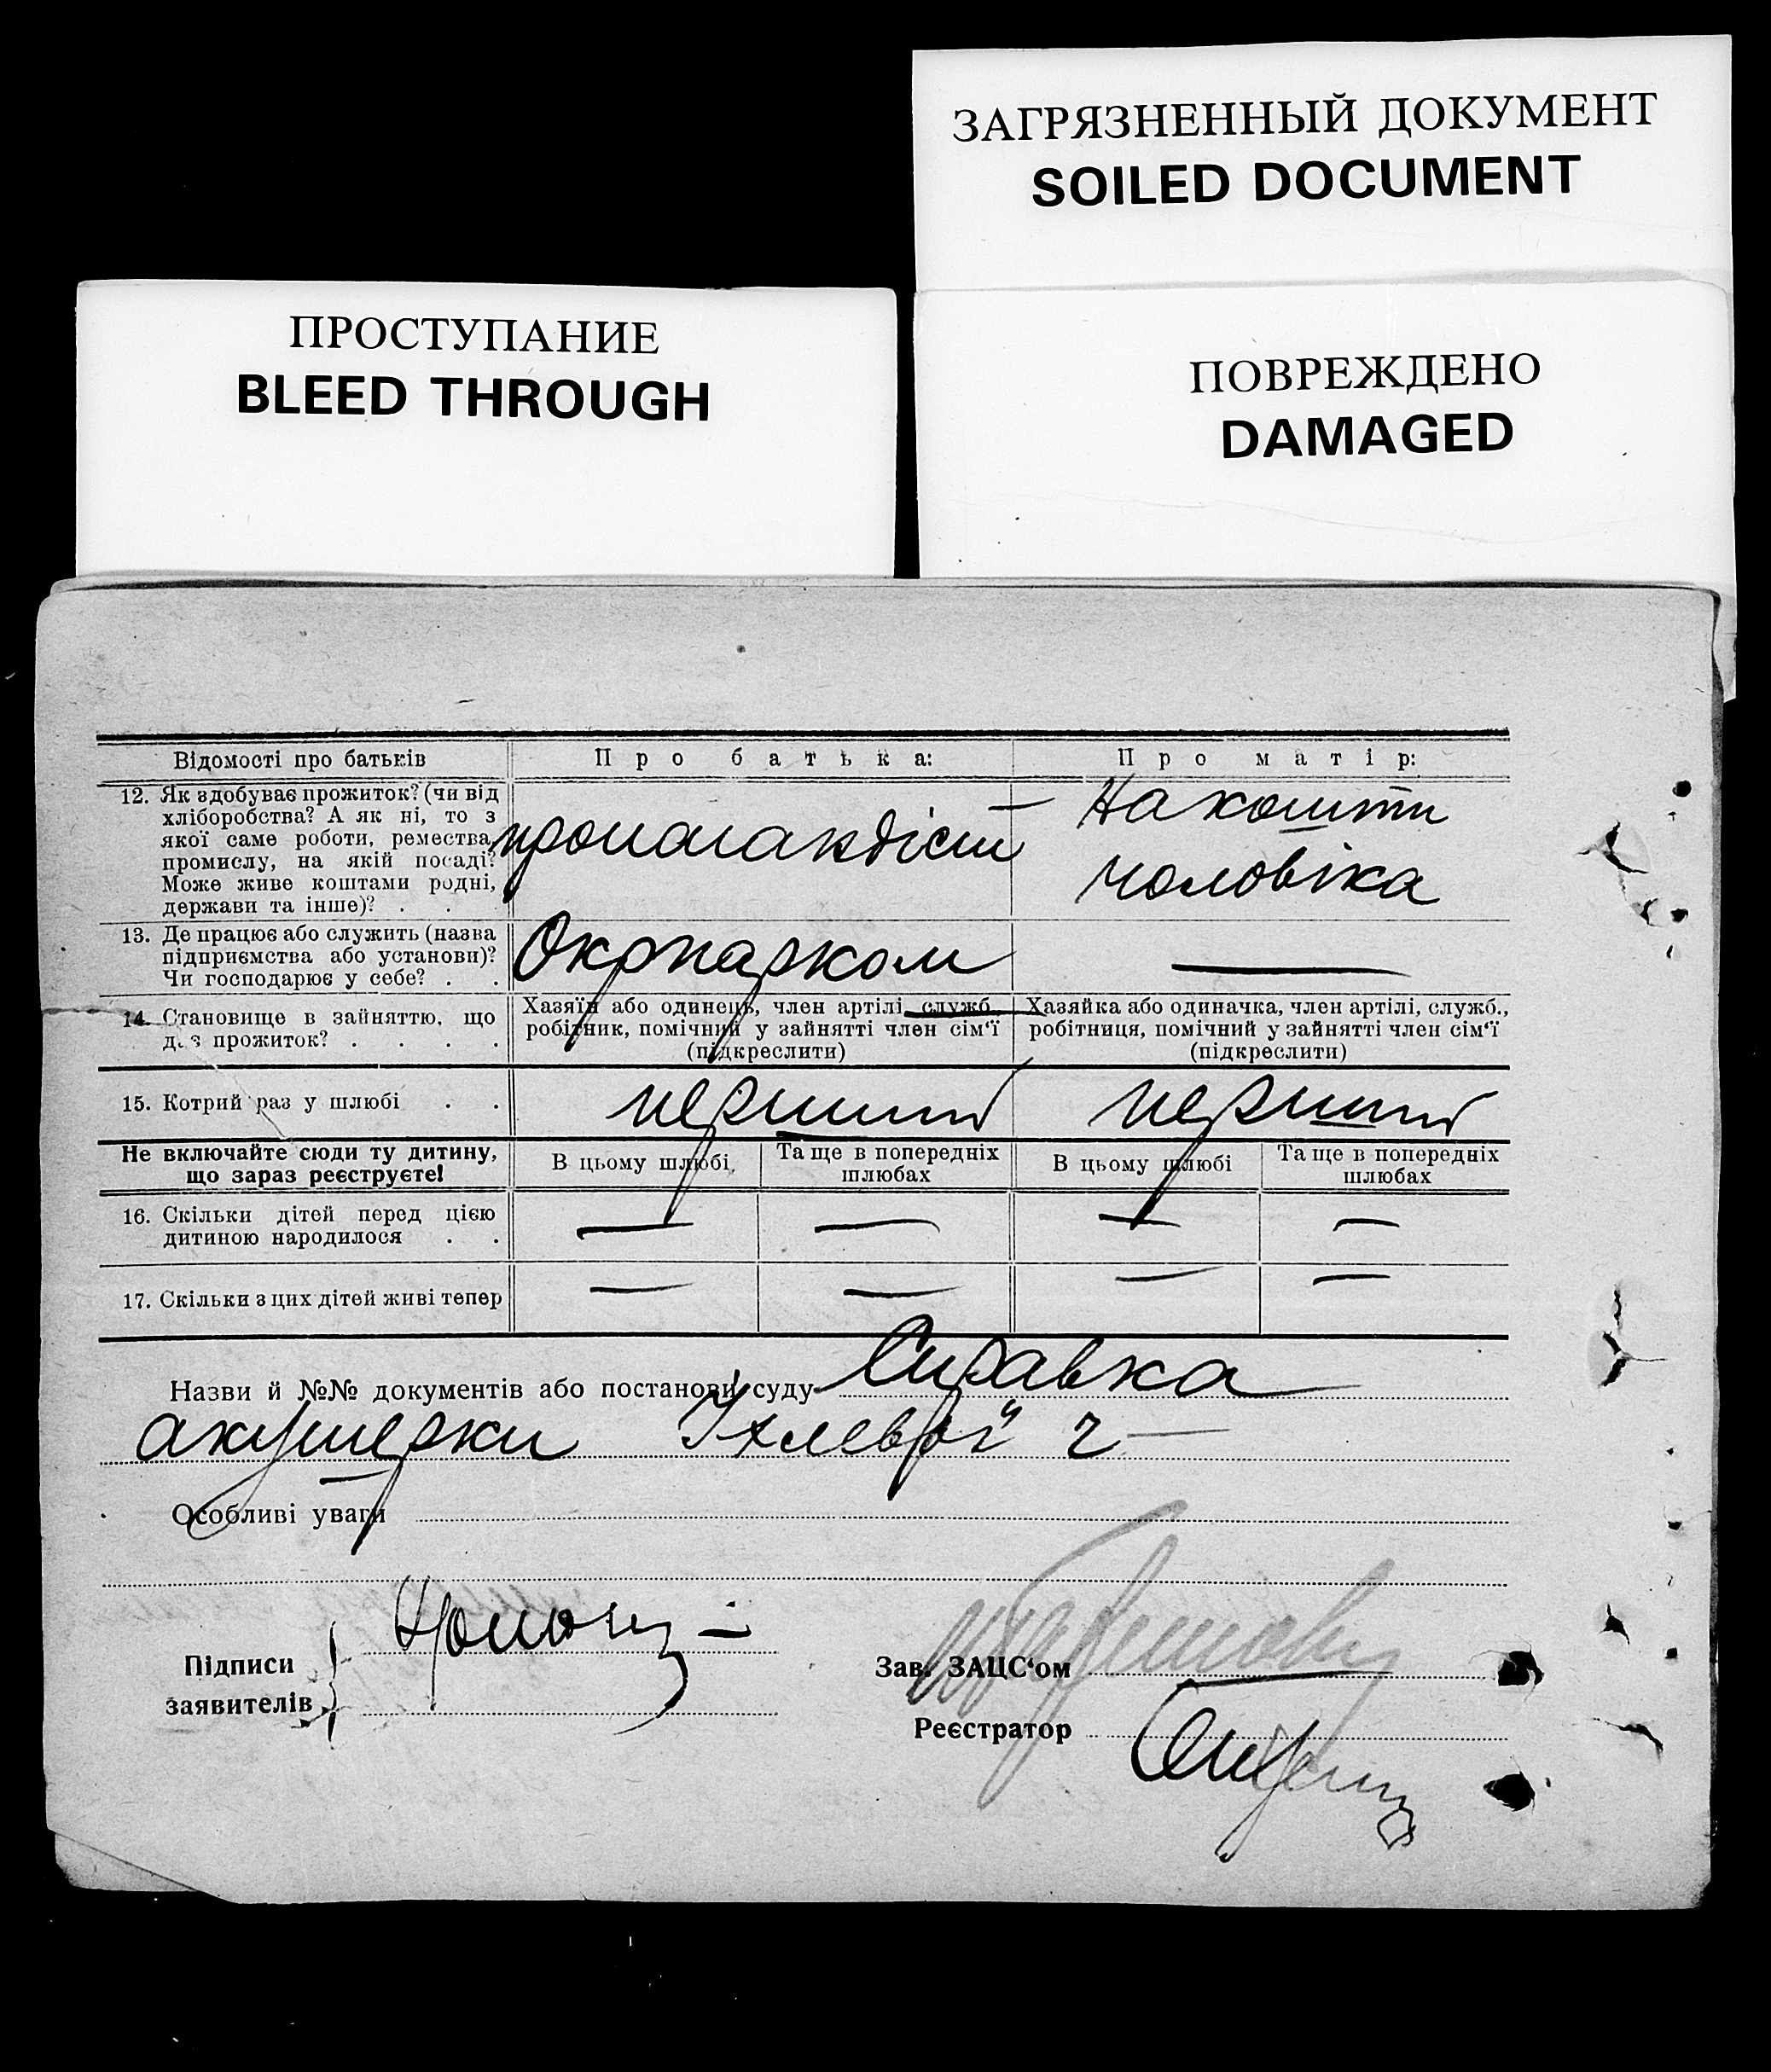 ЗАГРЯЗНЕННЫЙ ДОКУМЕНТ
SOILED DOCUMENT
ПРОСТУПАНИЕ
BLEED THROUGH
ПОВРЕЖДЕНО
DAMAGED
Відомості про батьків
Про батька:
Про матір:
12. Як здобуває прожиток? (чи від
хліборобства? А як ні, то з
якої саме роботи, ремества,
промислу, на якій посаді?
Може живе коштами родні,
держави та інше)? . .
пропагандіст
На кошти
чоловіка
13. Де працює або служить (назва
підприємства або установи)?
Чи господарює у себе? . .
Окрпарком
—
14. Становище в зайняттю, що
дає прожиток? . . . .
Хазяїн або одинець, член артілі, служб.
робітник, помічний у зайнятті член сім'ї
(підкреслити)
Хазяйка або одиначка, член артілі, служб.,
робітниця, помічний у зайнятті член сім'ї
(підкреслити)
15. Котрий раз у шлюбі . .
перший
перший
Не включайте сюди ту дитину,
що зараз реєструєте!
В цьому шлюбі
Та ще в попередніх
шлюбах
В цьому шлюбі
Та ще в попередніх
шлюбах
16. Скільки дітей перед цією
дитиною народилося . .
— — — —
17. Скільки з цих дітей живі тепер
— — — —
Назви й №№ документів або постанови суду Справка
акушерки
Особливі уваги
Підписи
заявителів
Зав. ЗАЦС'ом
Реєстратор